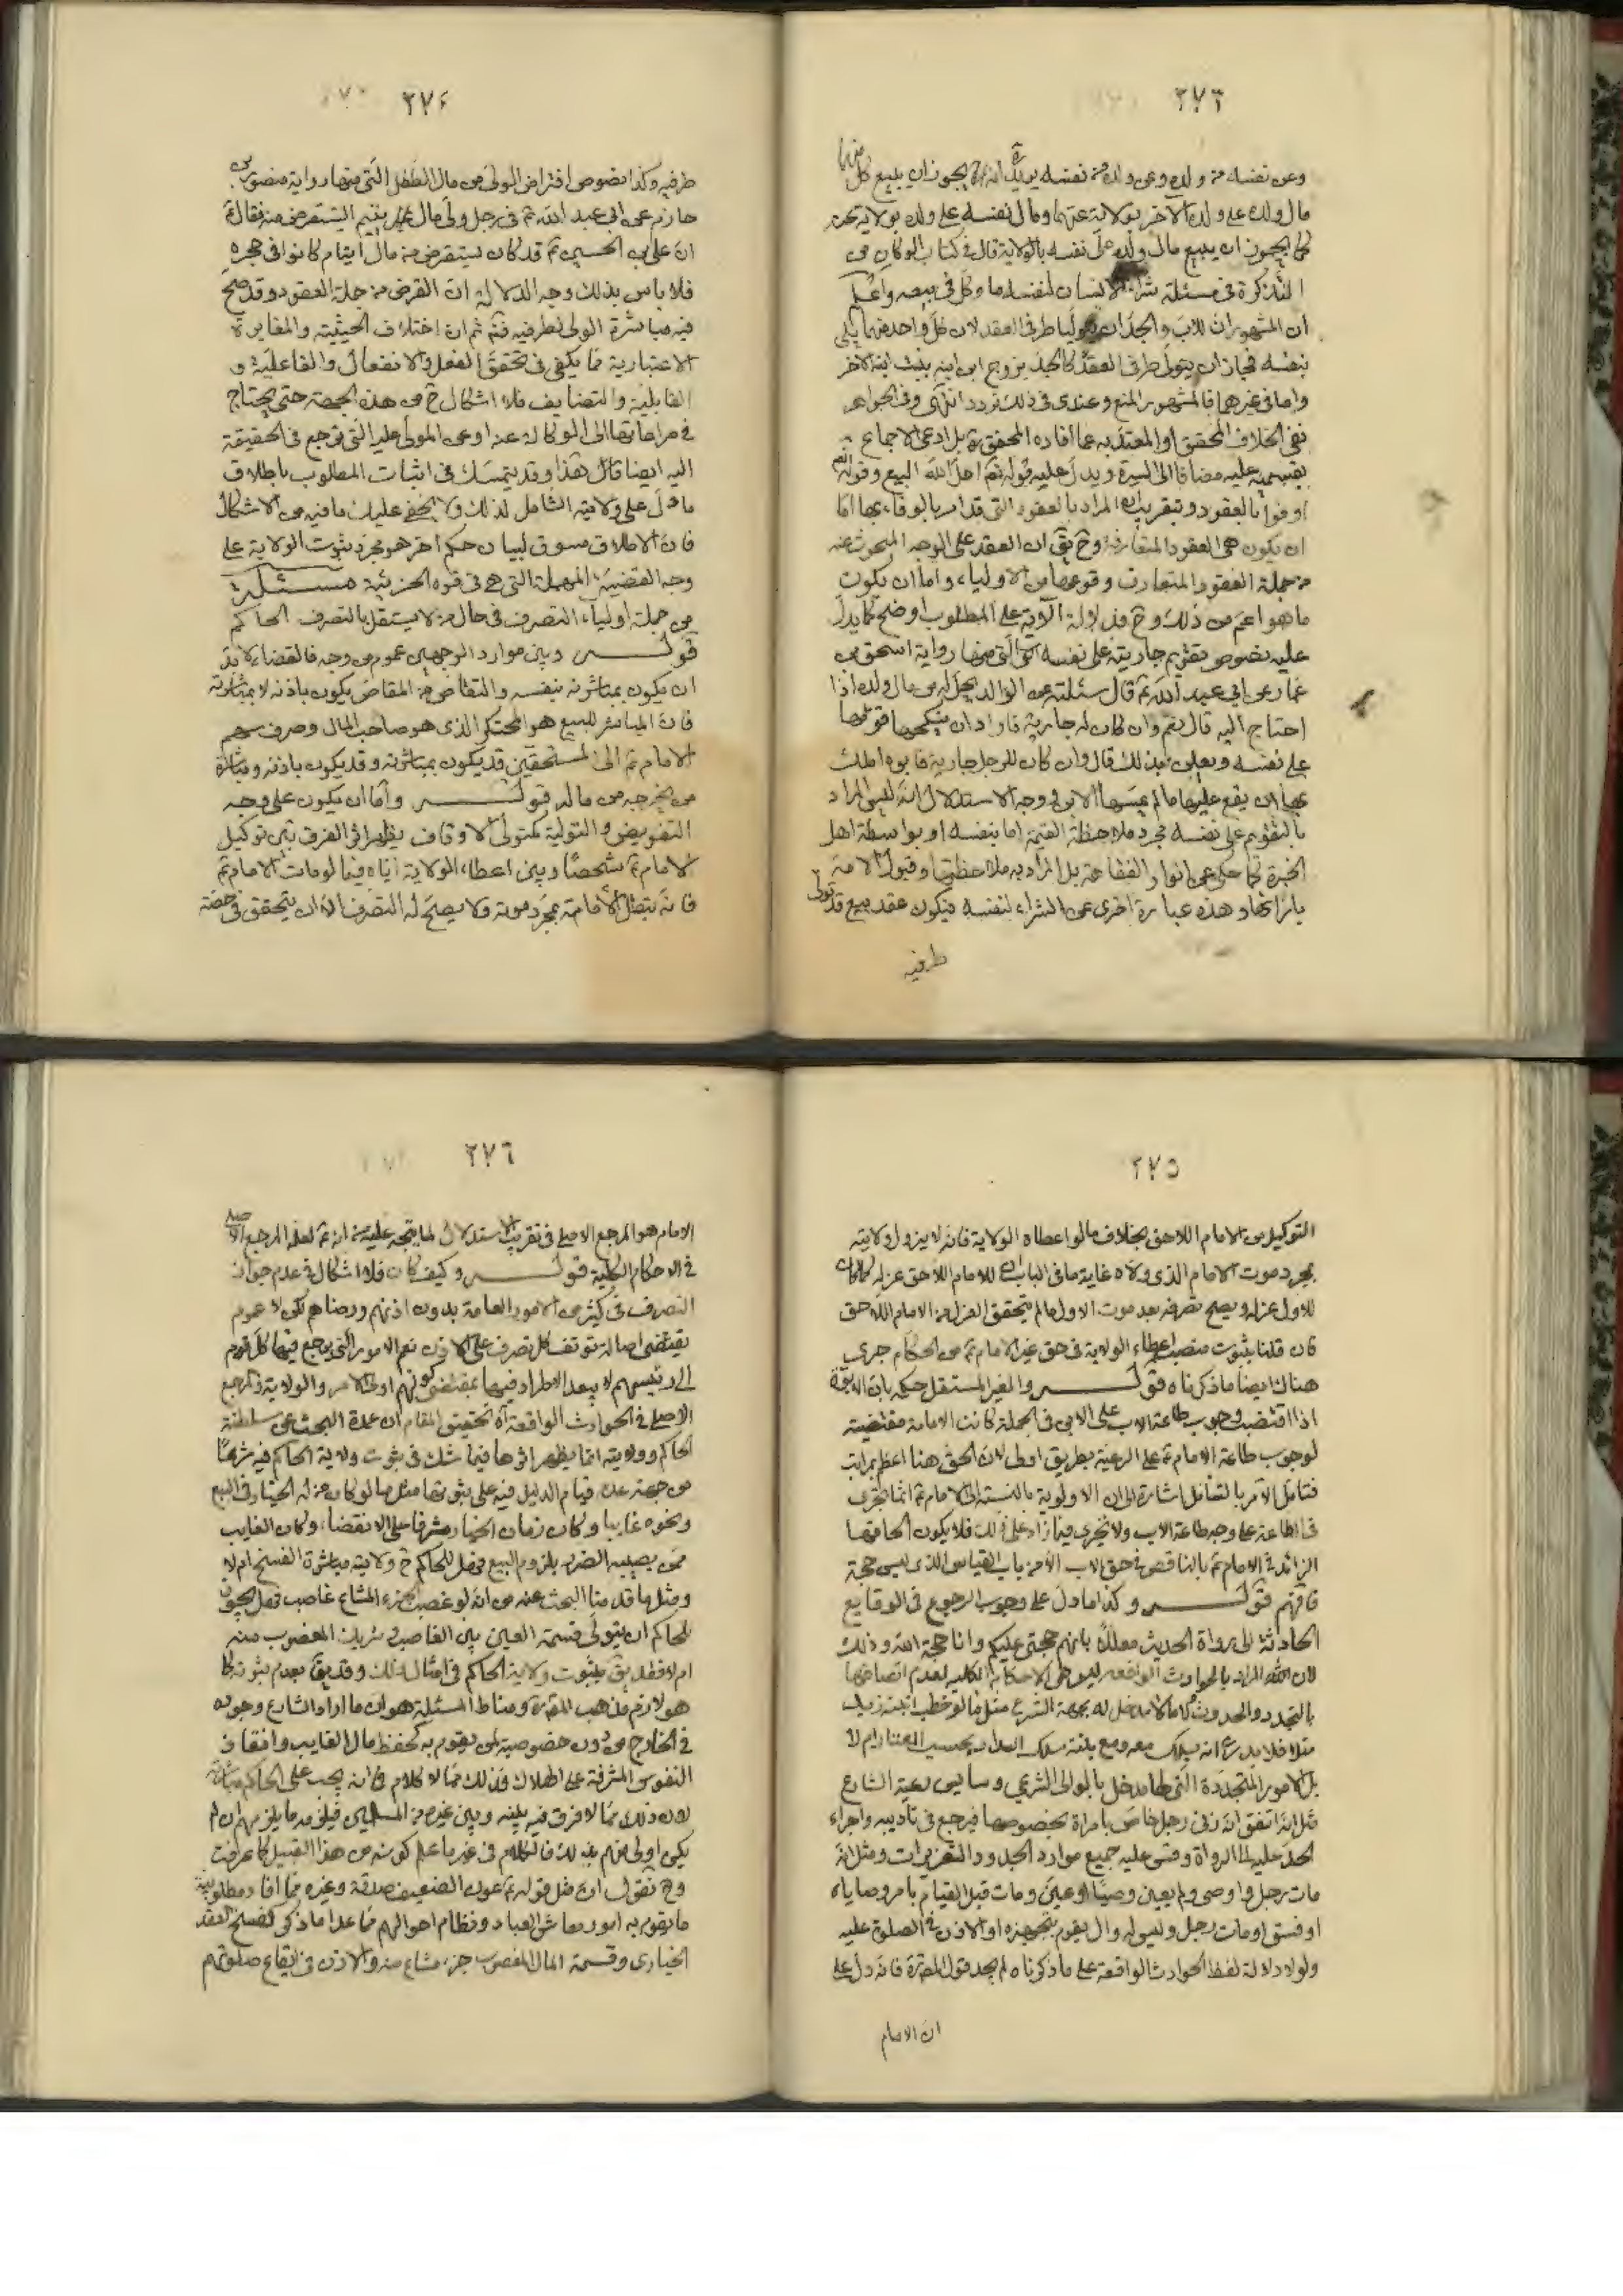 ٢٧٣
وعن نفسه من ولده وعن ولده من نفسه يريد انه يجوز ان يبيع كل منهما
مال ولده على ولده الاخر بولايته عنهما ومال نفسه على ولده بولايته
كما يجوز ان يبيع مال ولده على نفسه بالولاية قال في كتاب الوكالة من
التذكرة في مسئلة شراء الانسان لنفسه ما وكل في بيعه واعلم
ان المشهور ان للاب والجد ان يتوليا طرفى العقد لان كل واحد منهما يلي
بنفسه فجاز ان يتولى طرفى العقد كالجد يزوج ابن ابنه بنت ابنه الاخر
واما في غيرهما فالمشهور المنع وعندى في ذلك تردد انتهى وفي الجواهر
نفى الخلاف المحقق او المعتد به عما افاده المحقق ره بل ادعى الاجماع
بقسميه عليه مضافا الى السيرة ويدل عليه قوله تعم احل الله البيع وقوله تعم
اوفوا بالعقود وتقريبه ان المراد بالعقود التي قد امر بالوفاء بها اما
ان يكون هى العقود المتعارفة وح يتم ان العقد على الوجه المبحوث عنه
من جملة العقود المتعارف وقوعها من الاولياء واما ان يكون
ما هو اعم من ذلك وح فدلالة الاية على المطلوب اوضح كما يدل
عليه نصوص تقويم جاريته على نفسه التي منها رواية اسحق بن
عمار عن ابي عبد الله ع قال سئلته عن الوالد يحل له من مال ولده اذا
احتاج اليه قال نعم وان كان له جارية فاراد ان ينكحها قومها
على نفسه ويعلن ذلك قال وان كان للرجل جارية فابوه املك
بها ان يقع عليها ما لم يمسها الابن ووجه الاستدلال انه ليس المراد
بالتقويم على نفسه مجرد ملاحظة القيمة اما بنفسه او بواسطة اهل
الخبرة كما حكى عن انوار الفقاهة بل المراد به ملاحظتها وقبول الامة
بازائها وهذه عبارة اخرى عن الشراء لنفسه فيكون عقد بيع قد تولى
طرفيه
٢٧٤
طرفيه وكذا نصوص اقتراض الولى من مال الطفل التي منها رواية منصور بن
حازم عن ابى عبد الله ع في رجل ولى مال يتيم ايستقرض منه فقال
ان على بن الحسين ع قد كان يستقرض من مال ايتام كانوا في حجره
فلا باس بذلك وجه الدلالة ان القرض من جملة العقود وقد صح
فيه مباشرة الولى لطرفيه فتم ثم ان اختلاف الحيثية والمغايرة
الاعتبارية مما يكفى في تحقق الفعل والانفعال والفاعلية و
القابلية والتضايف فلا اشكال ح من هذه الجهة حتى يحتاج
في مراعاتها الى الوكالة عنه او عن المولى عليه التي ترجع في الحقيقة
اليه ايضا قال هذا وقد يتمسك في اثبات المطلوب باطلاق
ما دل على ولايته الشامل لذلك ولا يخفى عليك ما فيه من الاشكال
فان الاطلاق مسوق لبيان حكم اخر هو مجرد ثبوت الولاية على
وجه القضية المهملة التي هى في قوة الجزئية مسئلة
من جملة اولياء التصرف في مال من لا يستقل بالتصرف الحاكم
قوله وبين موارد الوجهين عموم من وجه فالقضاء لابد
ان يكون بمباشرته بنفسه والتقاص من المقاص يكون باذنه لا بمباشرته
فان المباشر للبيع هو المحتكر الذى هو صاحب المال وصرف سهم
الامام ع الى المستحقين قد يكون بمباشرته وقد يكون باذنه ومباشرة
من يخرجه من ماله قوله واما ان يكون على وجه
التفويض والتولية كمتولى الاوقاف يظهر اثر الفرق بين توكيل
الامام ع شخصا وبين اعطاء الولاية اياه فيما لو مات الامام ع
فانه يبطل الامامة بمجرد موته ولا يصح له التصرف الا ان يتحقق في حقه
٢٧٥
التوكيل من الامام اللاحق بخلاف ما لو اعطاه الولاية فانه لا يزول ولايته
بمجرد موت الامام الذى ولاه غاية ما في الباب ان للامام اللاحق عزله كما كان
للاول عزله ويصح تصرفه بعد موت الاول ما لم يتحقق العزل من الامام اللاحق
فان قلنا بثبوت منصب اعطاء الولاية في حق غير الامام ع من الحكام جرى
هناك ايضا ما ذكرناه قوله والغير المستقل حيكه بان الابوة
اذا اقتضت وجوب طاعة الاب على الابن في الجملة كانت الامامة مقتضية
لوجوب طاعة الامام ع على الرعية بطريق اولى لان الحق هنا اعظم بمراتب
فتامل الامر بالتامل اشارة الى ان الاولوية بالنسبة الى الامام ع انما تجرى
في اطاعته على وجه طاعة الاب ولا تجرى فيما زاد على ذلك فلا يكون الحاقها
الزائد في الامام ع بالناقص في حق الاب الا من باب القياس الذى ليس حجة
فافهم قوله وكذا ما دل على وجوب الرجوع في الوقايع
الحادثة الى رواة الحديث معللا بانهم حجتى عليكم وانا حجة الله وذلك
لان المراد بالحوادث الواقعة ليس هى الاحكام الكلية لعدم اتصافها
بالتجدد والحدوث كما لا مدخل له بجهة الشرع مثل ما لو خطب ابنته زيد
مثلا فلا يدرى انه يسلك معه ومع بنته مسلك العدل بحسب العشاير ام لا
بل الامور المتجددة التي لها مدخل بالموالى الشرعي وسايس رعية الشارع
مثل انه اتفق انه زنى رجل خاص بامراة بخصوصها فيرجع في تاديبه واجراء
الحد عليه الى الرواة وقس عليه جميع موارد الحدود والتعزيرات ومثل انه
مات رجل واوصى ولم يعين وصيا او عين ومات قبل القيام بامر وصاياه
او فسق او مات رجل وليس له وال يقوم بتجهيزه او الاذن في الصلوة عليه
ولولا دلالة لفظ الحوادث الواقعة على ما ذكرناه لم يجد قول المعترة فانه دل على
ان الامام
٢٧٦
الامام هو المرجع الاصلى في تقريب الاستدلال لما يتجه عليه من انه ع لعله المرجع الاصلى
في الاحكام الكلية قوله وكيف كان فلا اشكال في عدم جواز
التصرف في كثير من الامور العامة بدون اذنهم ورضاهم لكن لا عموم
يقتضى اصالة توقف كل تصرف على الاذن نعم الامور التي يرجع فيها كل قوم
الى رئيسهم لا يبعد الاطراد فيها بمقتضى كونهم اولى الامر والولاية والمرجع
الاصلى في الحوادث الواقعة اه تحقيق المقام ان عمدة البحث عن سلطنة
الحاكم وولايته انما يظهر اثرها فيما شك في ثبوت ولاية الحاكم فيه شرعا
من جهة عدم قيام الدليل فيه على ثبوتها مثل ما لو كان من له الخيار في البيع
ونحوه غايبا وكان زمان الخيار مشرفا على الانقضاء وكان الغايب
ممن يصيبه الضرر بلزوم البيع فهل للحاكم ح ولاية مباشرة الفسخ ام لا
ومثل ما قدمنا البحث عنه من انه لو غصب الجزء المشاع غاصب فهل يجوز
للحاكم ان يتولى قسمة العين بين الغاصب وشريك المغصوب منه
ام لا فقد يق بثبوت ولاية الحاكم في امثال ذلك وقد يق بعدم ثبوتها كما
هو لازم مذهب المقررة ومناط المسئلة هو ان ما اراد الشارع وجوده
في الخارج من دون خصوصية لمن يقوم به كحفظ مال الغايب وانقاذ
النفوس المشرفة على الهلاك وكذلك مما لا كلام في انه يجب على الحاكم مباشرته
لان ذلك مما لا فرق فيه بينه وبين غيره من المسلمين فيلزمه ما يلزمهم ان لم
يكن اولى منهم بذلك فالكلام في غير ما علم كونه من هذا القبيل كما عرفت
وح نقول ان مثل قوله ع عون الضعيف صدقة وغيره مما افاد مطلوبية
ما يقوم به امور معاش العباد ونظام احوالهم مما عدا ما ذكر كفسخ العقد
الخيارى وقسمة المال المغصوب جزء مشاع منه والاذن في ايقاع صلوتهم